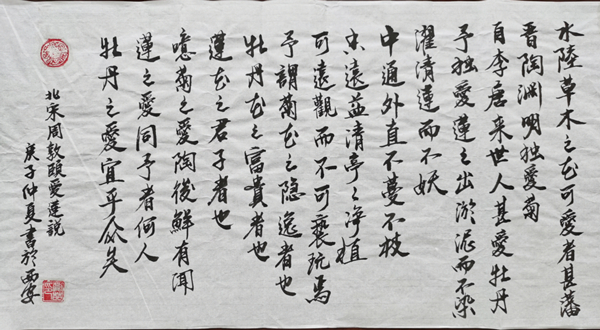 水陸草木之花可愛者甚蕃
晋陶渊明独愛菊
自李唐来世人甚愛牡丹
予独愛蓮之出淤泥而不染
濯清漣而不妖
中通外直不蔓不枝
香遠益清亭々净植
可遠觀而不可褻玩焉
予謂菊花之隐逸者也
牡丹花之富貴者也
蓮花之君子者也
噫菊之愛陶後鮮有聞
蓮之愛同予者何人
牡丹之愛宜乎众矣
北宋周敦頤爱蓮説
庚子仲夏書於西安